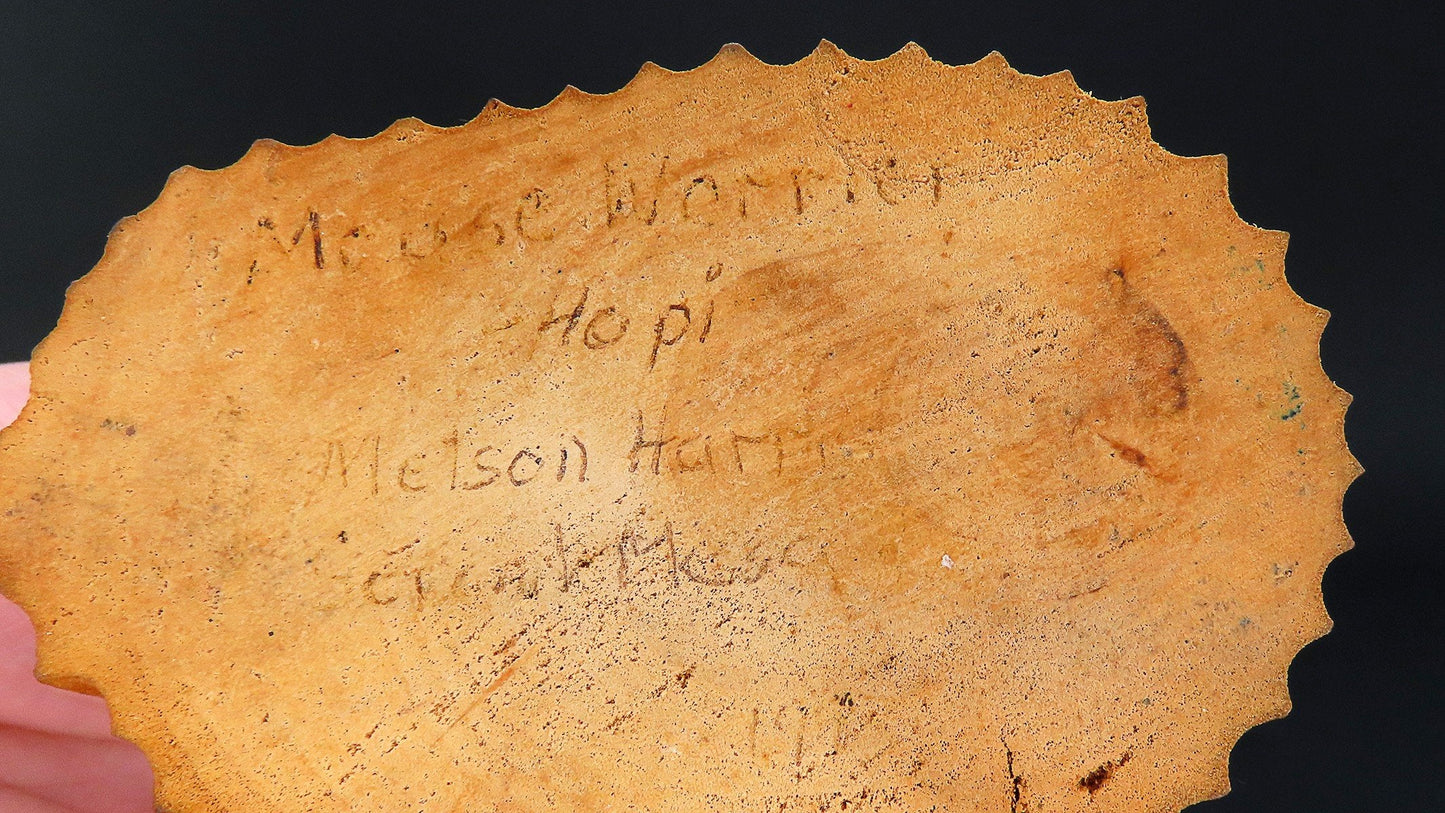 Mouse Worrier
Hopi
Melson Harris
Mesa